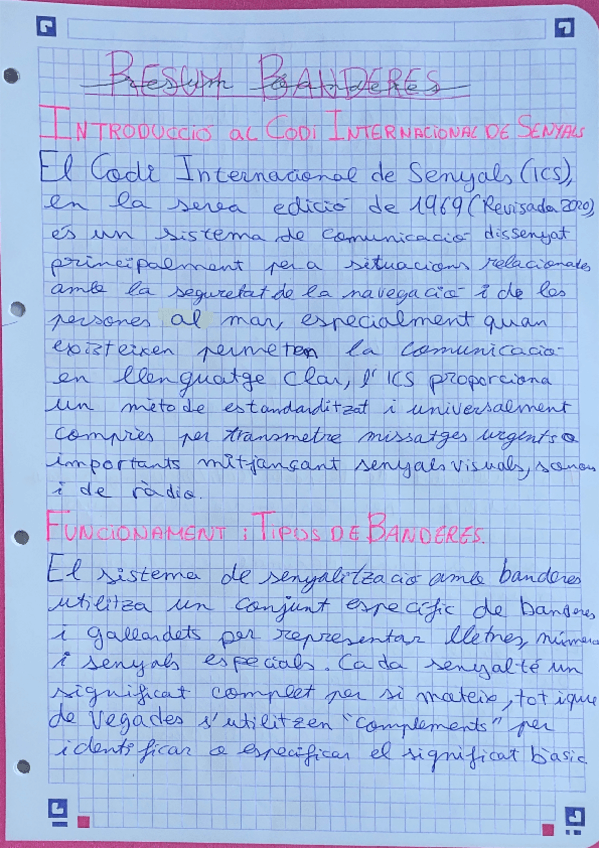 RESUM BANDERES
INTRODUCCIÓ AL CODI INTERNACIONAL DE SENYALS
El Codi Internacional de Senyals (ICS),
en la seva edició de 1969 (Revisada 2020),
és un sistema de comunicació dissenyat
principalment per a situacions relacionades
amb la seguretat de la navegació i de les
persones al mar, especialment quan
existeixen permeten la comunicació
en llenguatge clar, l'ICS proporciona
un mètode estandarditzat i universalment
comprès per transmetre missatges urgents o
importants mitjançant senyals visuals, sonors
i de ràdio.
FUNCIONAMENT i TIPUS DE BANDERES.
El sistema de senyalització amb banderes
utilitza un conjunt específic de banderes
i gallardets per representar lletres, números
i senyals especials. Cada senyal té un
significat complet per si mateix, tot i que
de vegades s'utilitzen "complements" per
identificar o especificar el significat bàsic